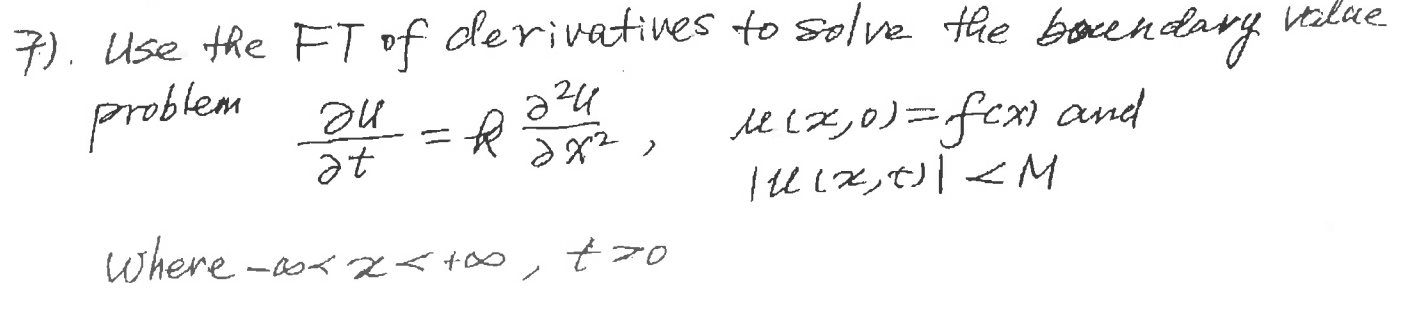 7). Use the FT of derivatives to solve the boundary value
problem ∂u/∂t = k ∂²u/∂x², u(x,0)=f(x) and
|u(x,t)| < M
where -∞< x < +∞, t>0